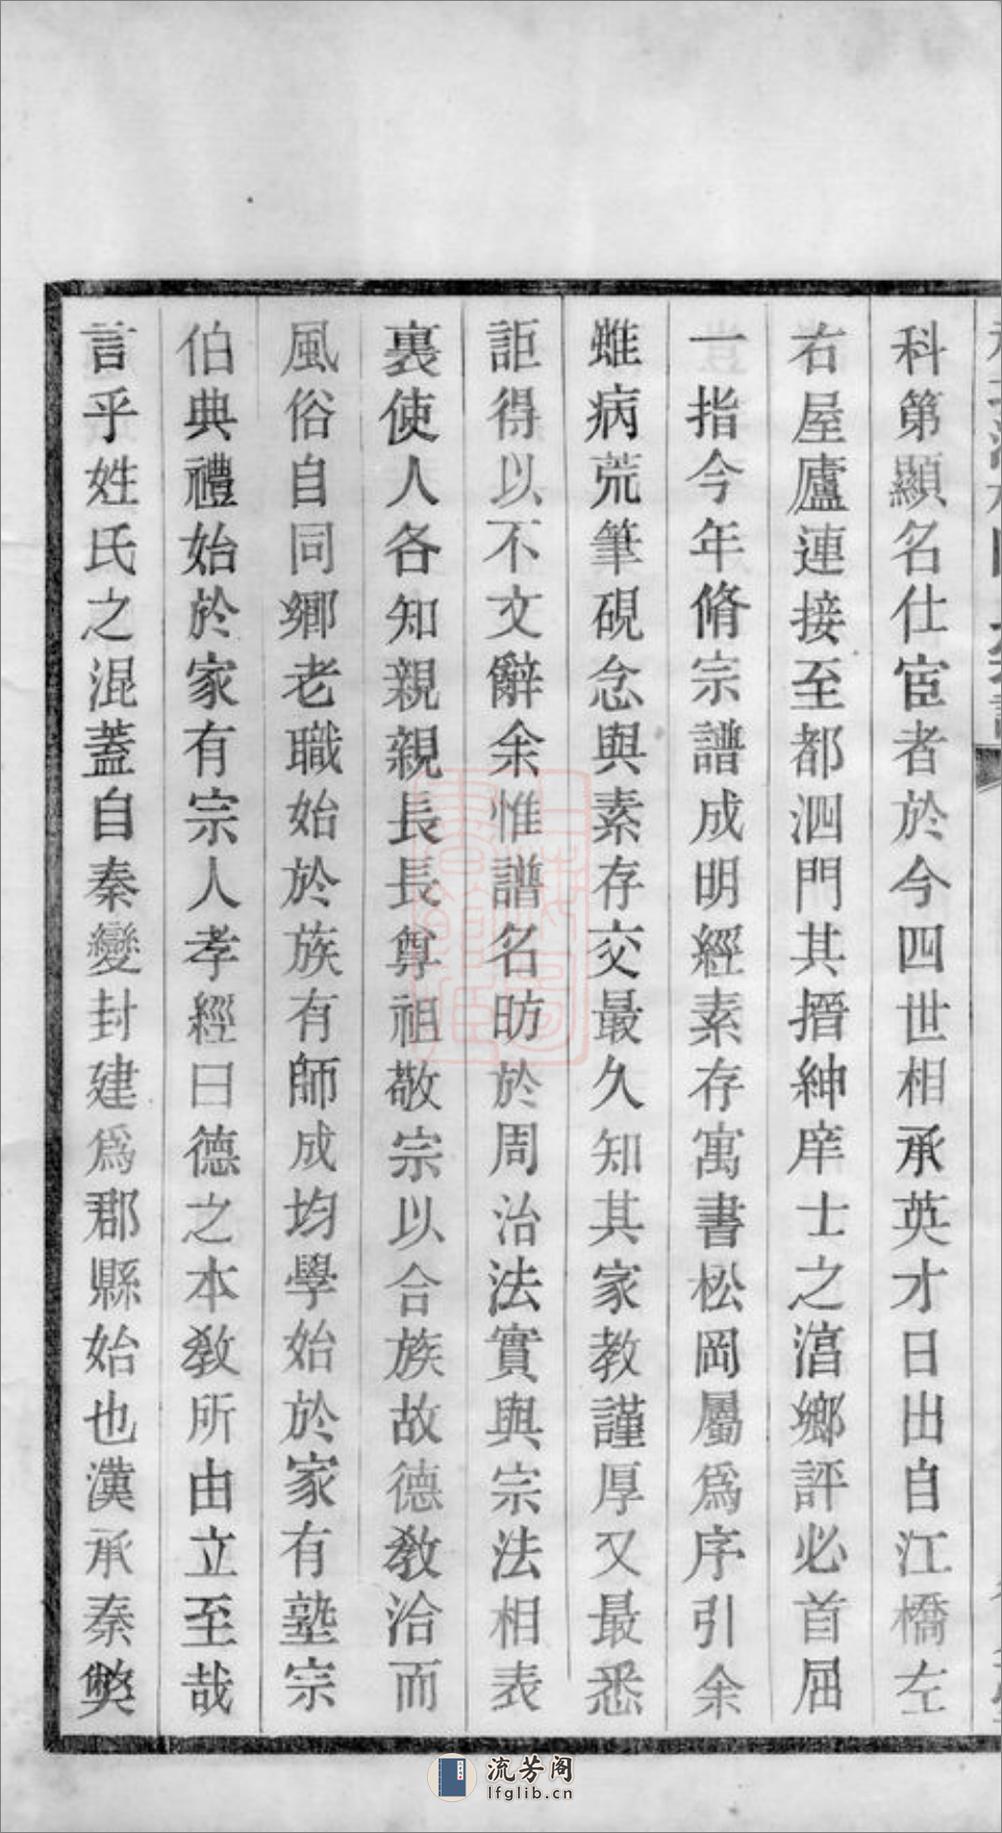 科第顯名仕宦者於今四世相承英才日出自江橋左
右屋廬連接至都泗門其搢紳庠士之㵎鄉評必首屈
一指今年脩宗譜成明經素存寓書松岡屬爲序引余
雖病荒筆硯念與素存交最久知其家教謹厚又最悉
詎得以不文辭余惟譜名昉於周治法實與宗法相表
裏使人各知親親長長尊祖敬宗以合族故德敎洽而
風俗自同鄉老職始於族有師成均學始於家有塾宗
伯典禮始於家有宗人孝經曰德之本敎所由立至哉
言乎姓氏之混蓋自秦變封建爲郡縣始也漢承秦獘
流芳阁
lfglib.cn